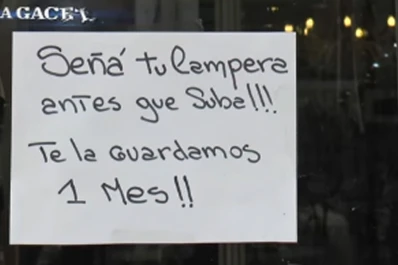 A GACE
Señá tu Campera
antes que Suba!!!
Te la Guardamos
1 Mes!!